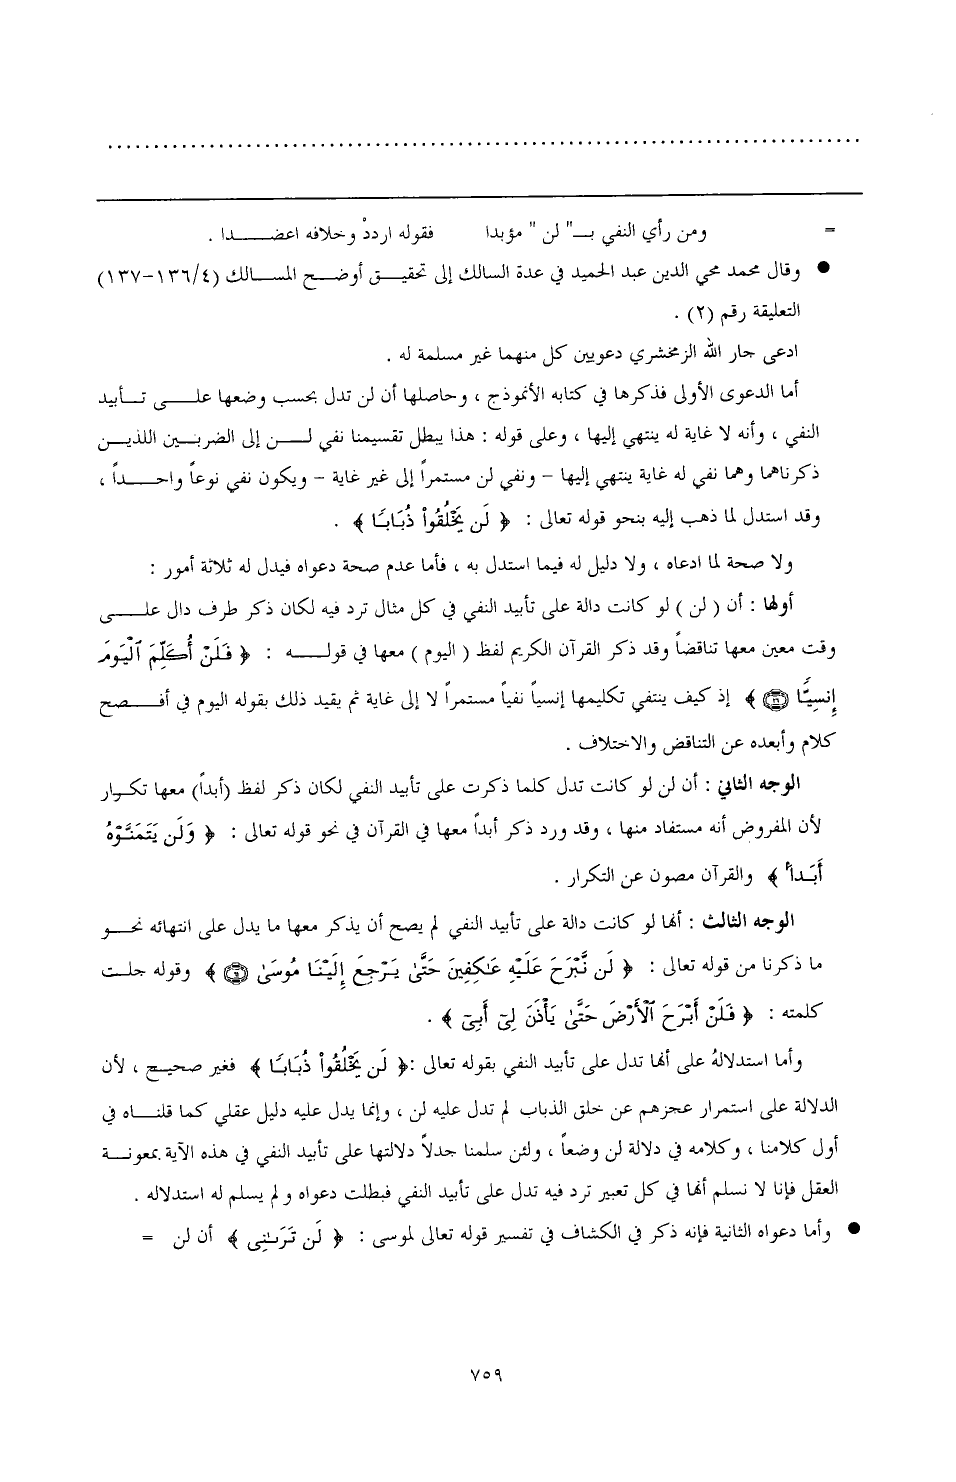 = ومن رأي النفي بـ" لن " مؤبدا فقوله اردد وخلافه اعضدا .
● وقال محمد محي الدين عبد الحميد في عدة السالك إلى تحقيق أوضح المسالك (٤/١٣٦-١٣٧)
التعليقة رقم (٢) .
ادعى جار الله الزمخشري دعويين كل منهما غير مسلمة له .
أما الدعوى الأولى فذكرها في كتابه الأنموذج ، وحاصلها أن لن تدل بحسب وضعها على تأبيد
النفي ، وأنه لا غاية له ينتهي إليها ، وعلى قوله : هذا يبطل تقسيمنا نفي لن إلى الضربين اللذين
ذكرناهما وهما نفي له غاية ينتهي إليها - ونفي لن مستمراً إلى غير غاية - ويكون نفي نوعاً واحداً ،
وقد استدل لما ذهب إليه بنحو قوله تعالى : ﴿ لَن يَخْلُقُواْ ذُبَابًا ﴾ .
ولا صحة لما ادعاه ، ولا دليل له فيما استدل به ، فأما عدم صحة دعواه فيدل له ثلاثة أمور :
أولها : أن ( لن ) لو كانت دالة على تأبيد النفي في كل مثال ترد فيه لكان ذكر طرف دال على
وقت معين معها تناقضاً وقد ذكر القرآن الكريم لفظ ( اليوم ) معها في قوله : ﴿ فَلَنْ أُكَلِّمَ ٱلْيَوْمَ
إِنسِيًّا ٢٦ ﴾ إذ كيف ينتفي تكليمها إنسياً نفياً مستمراً لا إلى غاية ثم يقيد ذلك بقوله اليوم في أفصح
كلام وأبعده عن التناقض والاختلاف .
الوجه الثاني : أن لن لو كانت تدل كلما ذكرت على تأبيد النفي لكان ذكر لفظ (أبداً) معها تكرار
لأن المفروض أنه مستفاد منها ، وقد ورد ذكر أبداً معها في القرآن في نحو قوله تعالى : ﴿ وَلَن يَتَمَنَّوْهُ
أَبَدًا ﴾ والقرآن مصون عن التكرار .
الوجه الثالث : أنها لو كانت دالة على تأبيد النفي لم يصح أن يذكر معها ما يدل على انتهائه نحو
ما ذكرنا من قوله تعالى : ﴿ لَن نَّبْرَحَ عَلَيْهِ عَٰكِفِينَ حَتَّىٰ يَرْجِعَ إِلَيْنَا مُوسَىٰ ٩١ ﴾ وقوله جلت
كلمته : ﴿ فَلَنْ أَبْرَحَ ٱلْأَرْضَ حَتَّىٰ يَأْذَنَ لِىٓ أَبِىٓ ﴾ .
وأما استدلالهُ على أنها تدل على تأبيد النفي بقوله تعالى :﴿ لَن يَخْلُقُواْ ذُبَابًا ﴾ فغير صحيح ، لأن
الدلالة على استمرار عجزهم عن خلق الذباب لم تدل عليه لن ، وإنما يدل عليه دليل عقلي كما قلناه في
أول كلامنا ، وكلامه في دلالة لن وضعاً ، ولئن سلمنا جدلاً دلالتها على تأبيد النفي في هذه الآية بمعونة
العقل فإنا لا نسلم أنها في كل تعبير ترد فيه تدل على تأبيد النفي فبطلت دعواه ولم يسلم له استدلاله .
● وأما دعواه الثانية فإنه ذكر في الكشاف في تفسير قوله تعالى لموسى : ﴿ لَن تَرَىٰنِى ﴾ أن لن =
٧٥٩